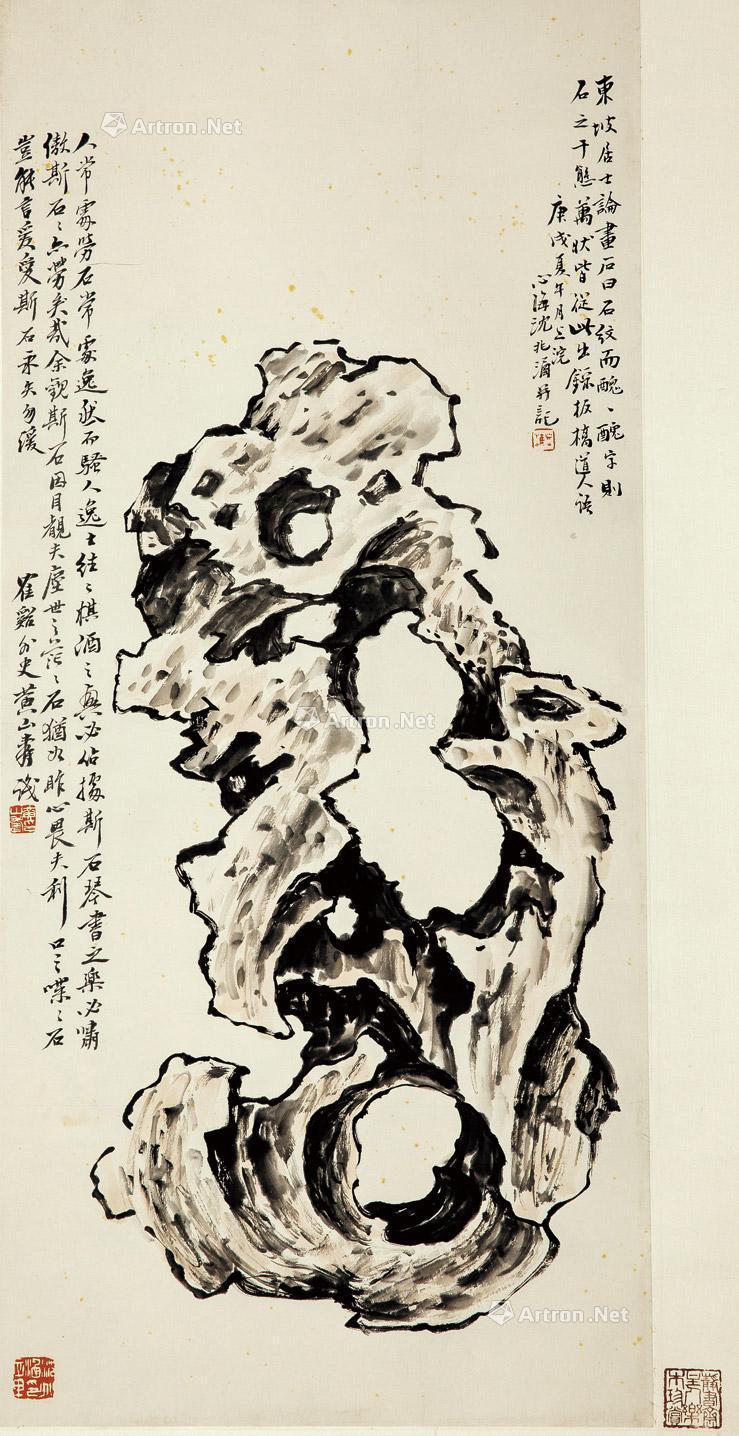 東坡居士論畫石曰石紋而醜、醜字則
石之千態萬狀皆從此出錄板橋道人語
庚戌夏午月上浣
心海沈兆涵并記
人常處勞石常處逸然而騷人逸士往〻棋酒之興必佔據斯石琴書之樂必嘯
傲斯石〻亦勞矣哉余觀斯石因目觀夫塵世之茫〻石猶如昨心畏夫利口之喋〻石
豈能言爰愛斯石永矢勿諼
雀谿外史黃山壽識
Artron.Net
Artron.Net
Artron.Net